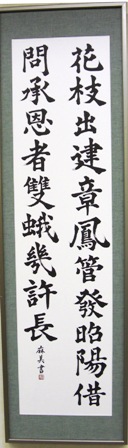 花枝出建章鳳管發昭陽借
問承恩者雙蛾幾許長
麻美書